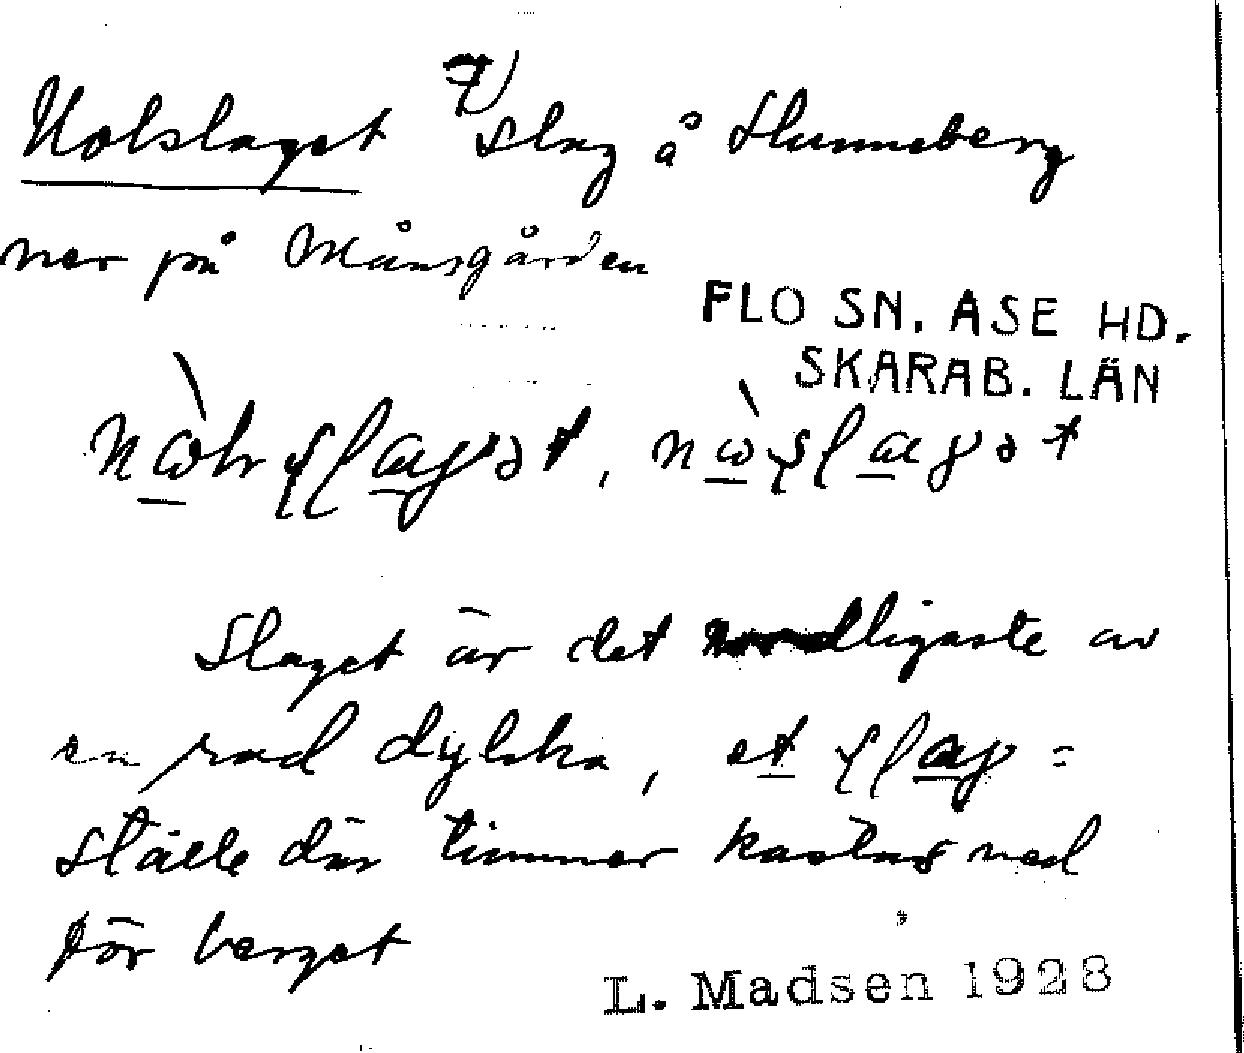 Nolslaget 7) Slag å Hunneberg
ner på Månsgården
FLO SN. ASE HD.
SKARAB. LÄN
Slaget är det nordligaste av
en rad dylika, et slag =
ställe där timmer kastas ned
för berget
L. Madsen 1928